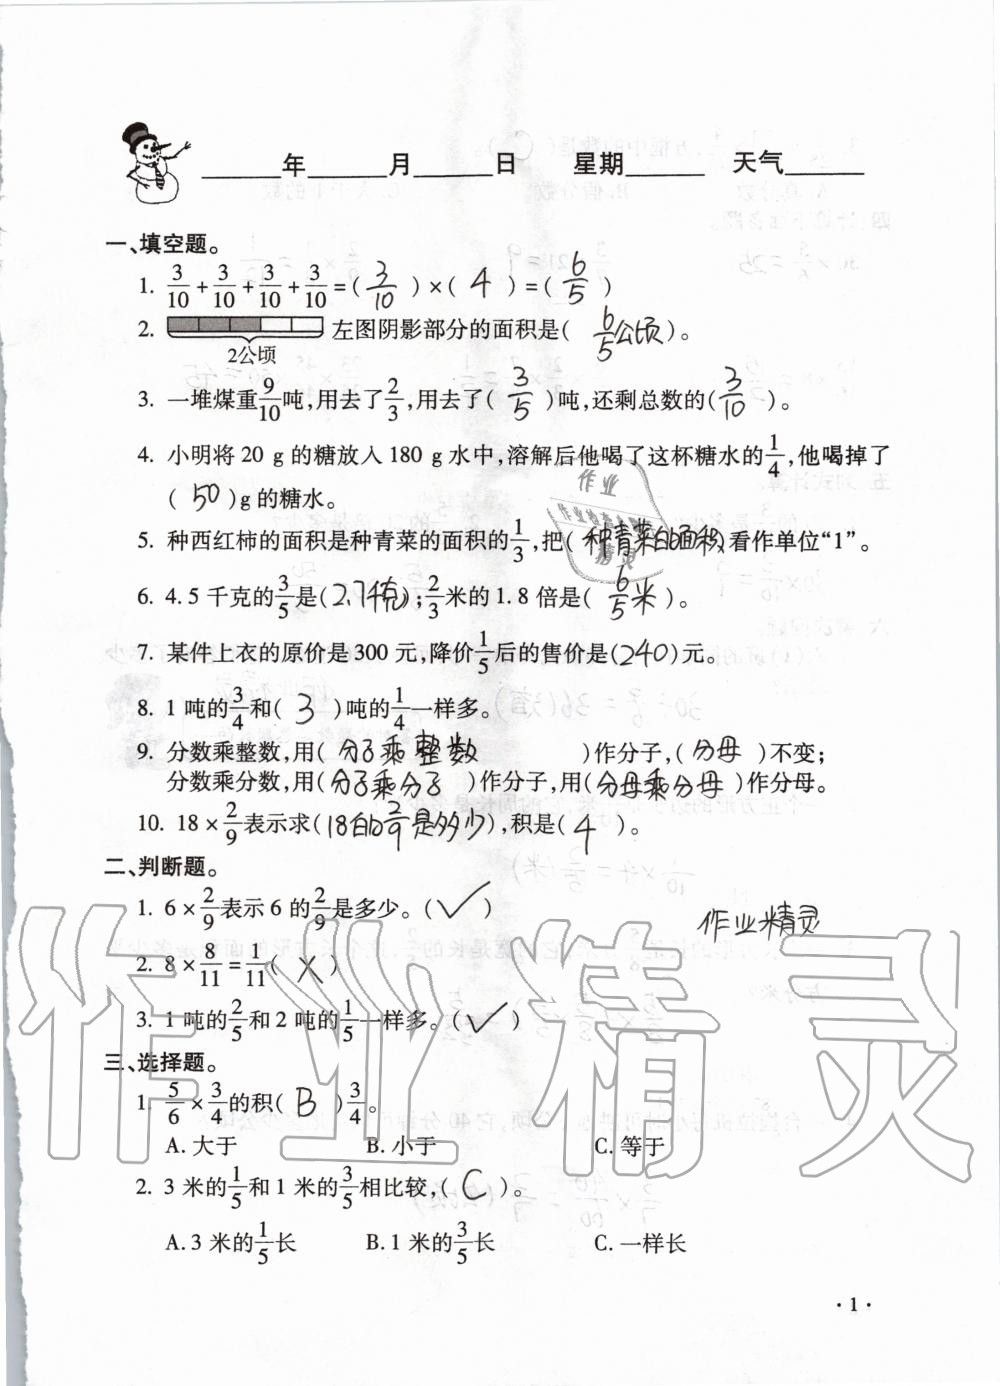 ______年______月______日 星期______ 天气______
一、填空题。
1. 3/10+3/10+3/10+3/10=( 3/10 )×( 4 )=( 6/5 )
2. 左图阴影部分的面积是( 6/5公顷 )。
2公顷
3. 一堆煤重9/10吨,用去了2/3,用去了( 3/5 )吨,还剩总数的( 3/10 )。
4. 小明将 20 g 的糖放入 180 g 水中,溶解后他喝了这杯糖水的1/4,他喝掉了
( 50 )g的糖水。
5. 种西红柿的面积是种青菜的面积的1/3,把( 种青菜的面积 )看作单位“1”。
6. 4.5 千克的3/5是( 2.7千克 );2/3米的 1.8 倍是( 6/5米 )。
7. 某件上衣的原价是 300 元,降价1/5后的售价是( 240 )元。
8. 1 吨的3/4和( 3 )吨的1/4一样多。
9. 分数乘整数,用( 分子乘整数 )作分子,( 分母 )不变;
分数乘分数,用( 分子乘分子 )作分子,用( 分母乘分母 )作分母。
10. 18×2/9表示求( 18的2/9是多少 ),积是( 4 )。
二、判断题。
1. 6×2/9表示 6 的2/9是多少。( ✓ )
作业精灵
2. 8×8/11=1/11( × )
3. 1 吨的2/5和 2 吨的1/5一样多。( ✓ )
三、选择题。
1. 5/6×3/4的积( B )3/4。
A. 大于 B. 小于 C. 等于
2. 3 米的1/5和 1 米的3/5相比较,( C )。
A. 3 米的1/5长 B. 1 米的3/5长 C. 一样长
· 1 ·
作业精灵